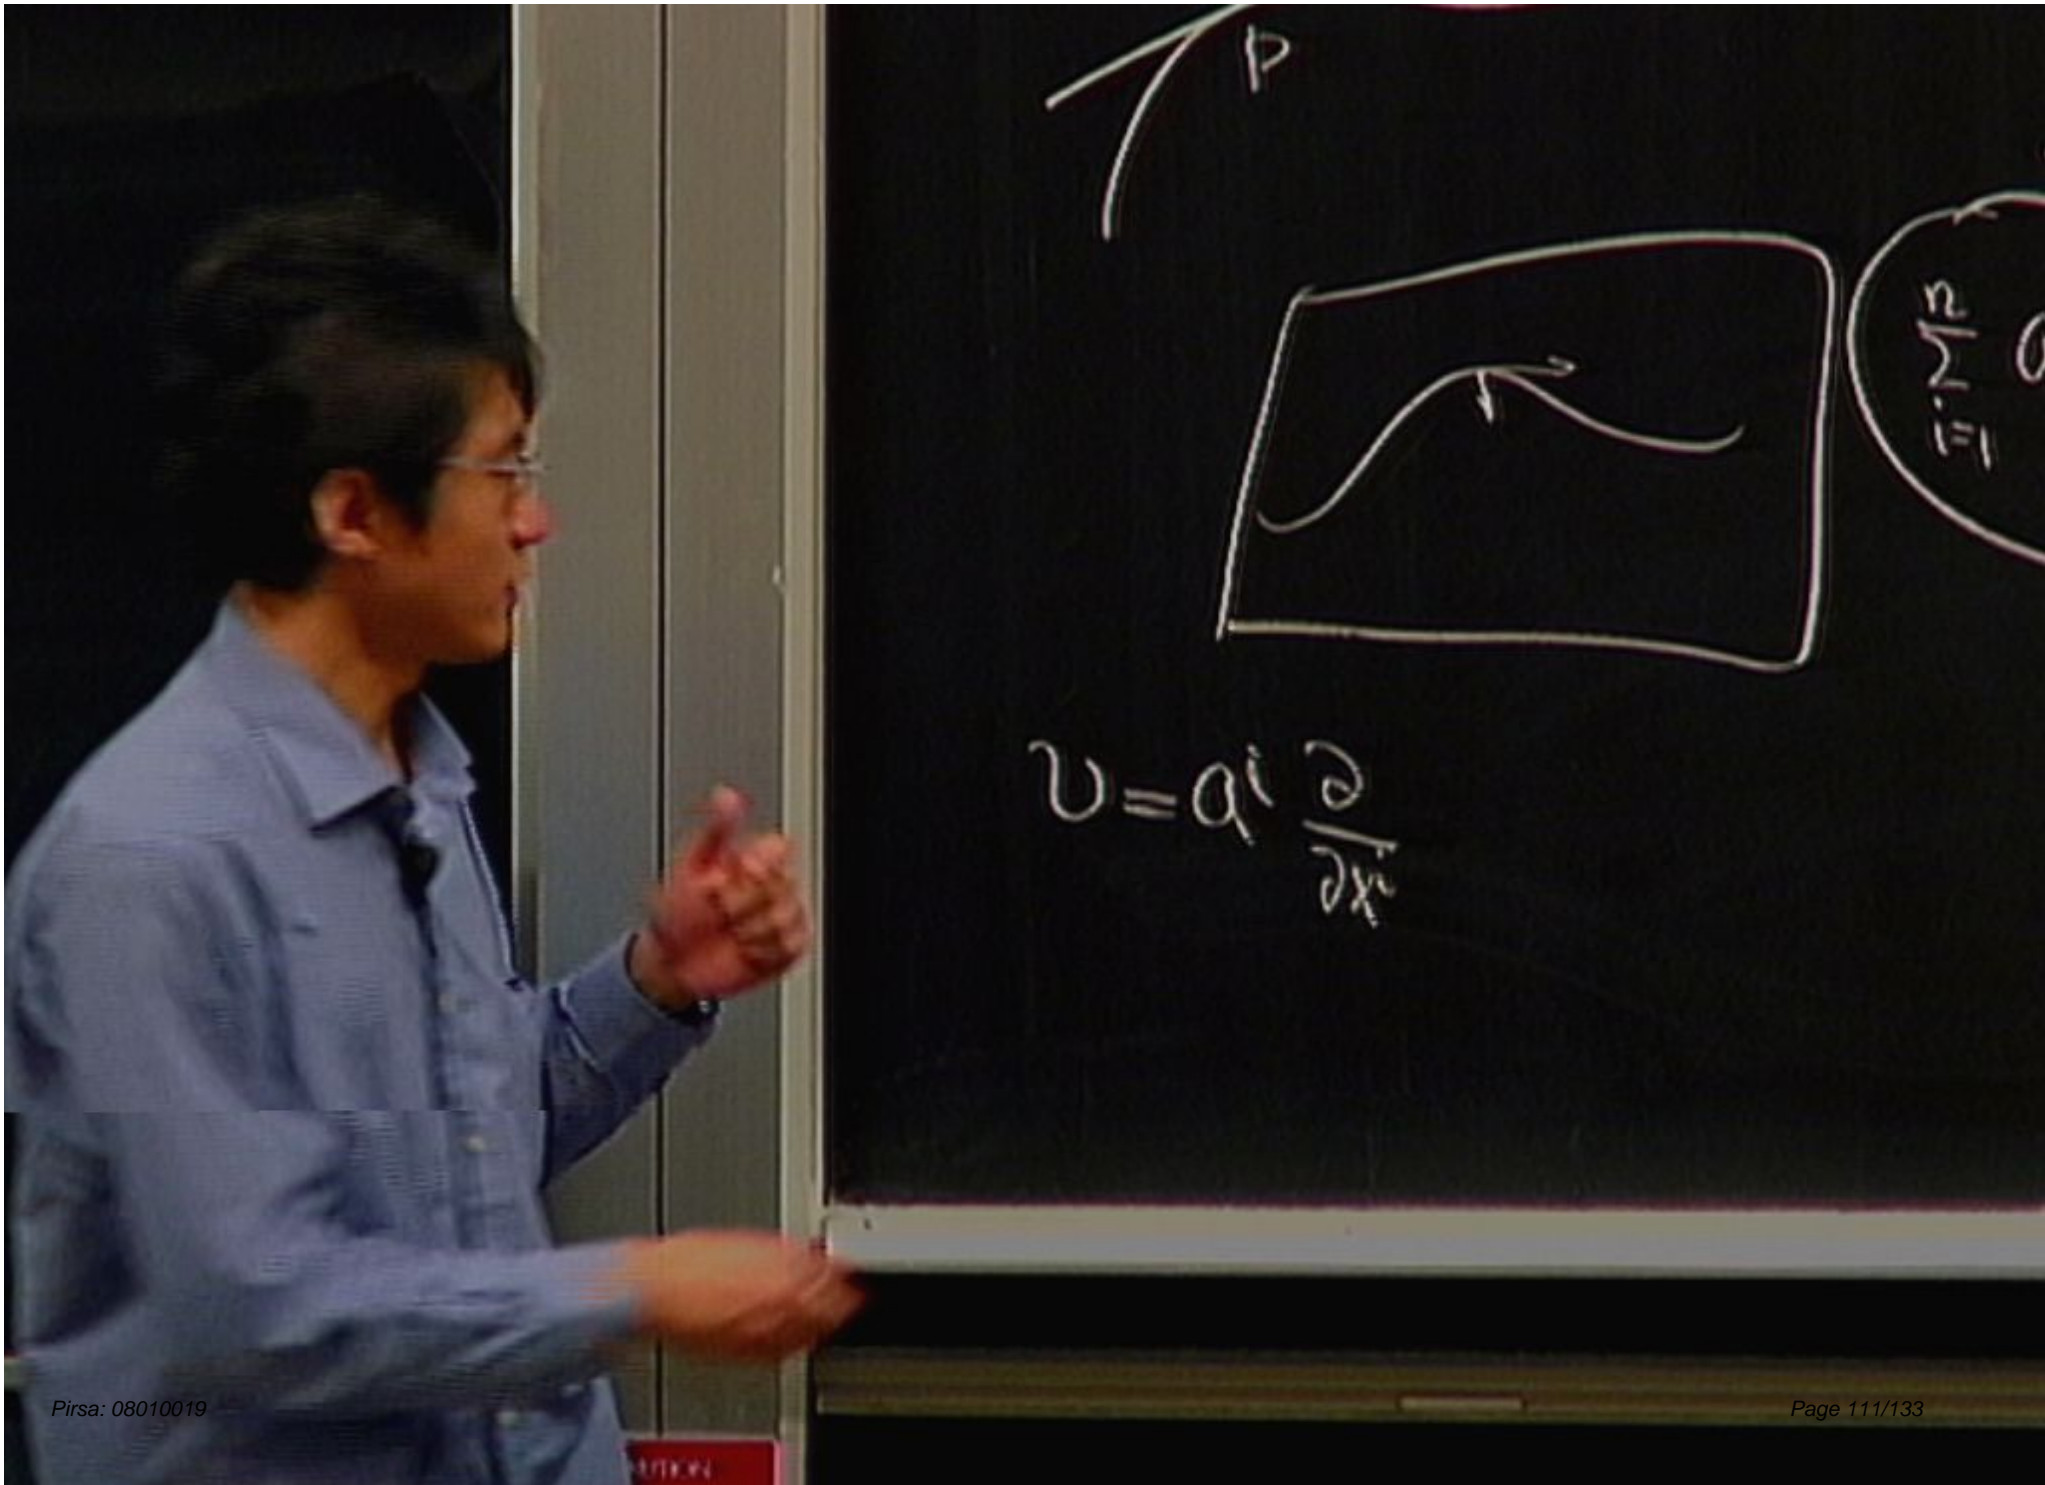 P
n
Σ a
i=1
v = aⁱ ∂
∂xⁱ
Pirsa: 08010019
Page 111/133